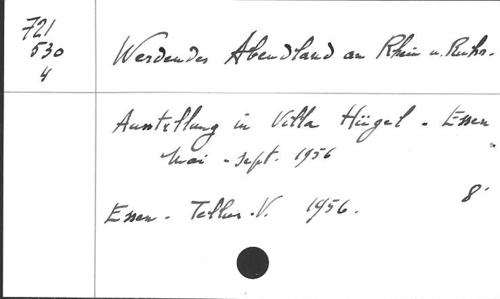 721
530
4
Werdendes Abendland an Rhein u. Ruhr.
Ausstellung in Villa Hügel - Essen
Mai - Sept. 1956
Essen - Tellus-V. 1956. 8°